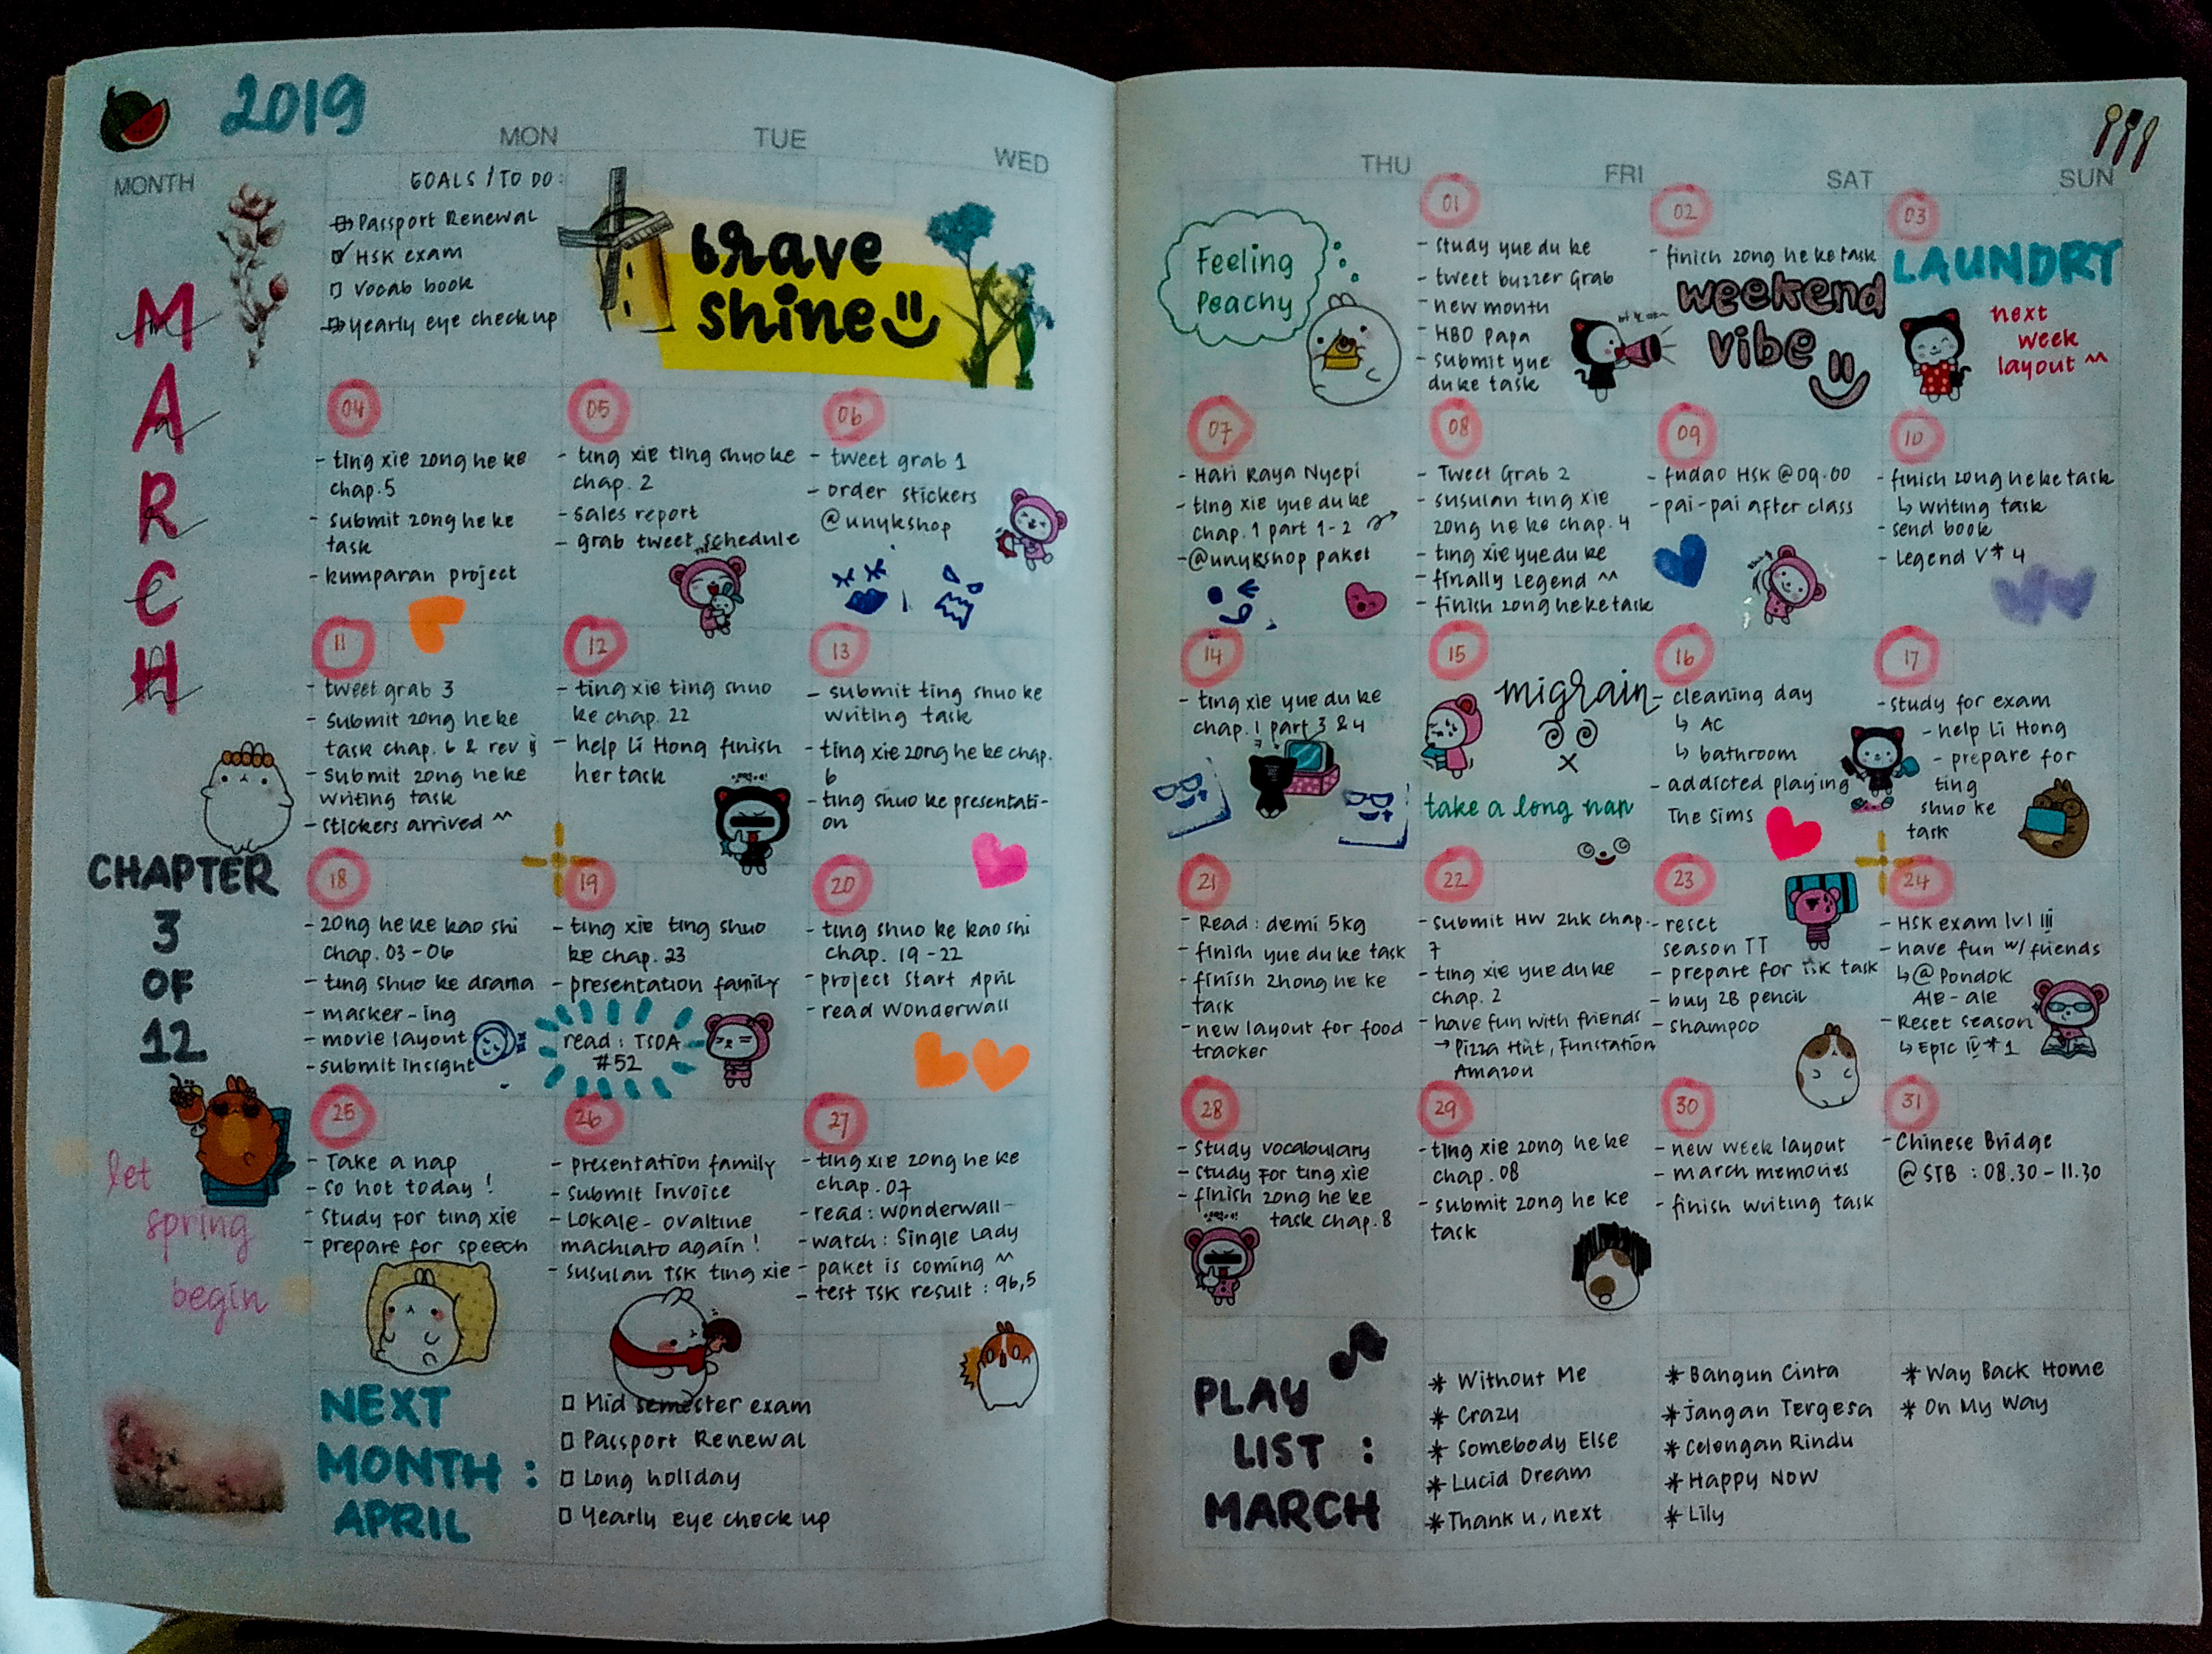 2019
MONTH
MON
TUE
WED
THU
FRI
SAT
SUN
MARCH
CHAPTER
3
OF
12
let
spring
begin
GOALS / TO DO:
Passport Renewal
HSK exam
Vocab book
Yearly eye check up
brave
shine
Feeling
Peachy
01
- Study yue du ke
- tweet buzzer Grab
- new month
- HBD Papa
- submit yue
du ke task
02
- finich zong he ke task
weekend
vibe
03
LAUNDRY
next
week
layout ^^
04
- ting xie zong he ke
chap. 5
- Submit zong he ke
task
- kumparan project
05
- ting xie ting shuo ke
chap. 2
- sales report
- grab tweet schedule
06
- tweet grab 1
- order stickers
@unykshop
07
- Hari Raya Nyepi
- ting xie yue du ke
chap. 1 part 1-2
- @unykshop paket
08
- Tweet Grab 2
- susulan ting xie
zong he ke chap. 4
- ting xie yue du ke
- finally Legend ^^
- finish zong he ke task
09
- fudao HSK @09.00
- pai-pai after class
10
- finish zong he ke task
↳ writing task
- send book
- Legend V * 4
11
- tweet grab 3
- Submit zong he ke
task chap. 6 & rev ij
- Submit zong he ke
writing task
- stickers arrived ^^
12
- ting xie ting shuo
ke chap. 22
- help Li Hong finish
her task
13
- submit ting shuo ke
writing task
- ting xie zong he ke chap.
6
- ting shuo ke presentati-
on
14
- ting xie yue du ke
chap. 1 part 3 & 4
15
migrain
take a long nap
16
- cleaning day
↳ AC
↳ bathroom
- addicted playing
The Sims
17
- study for exam
- help Li Hong
- prepare for
ting
shuo ke
task
18
- zong he ke kao shi
chap. 03-06
- ting shuo ke drama
- masker-ing
- movie layout
- submit insight
19
- ting xie ting shuo
ke chap. 23
- presentation family
read : TSOA
#52
20
- ting shuo ke kao shi
chap. 19-22
- project start April
- read Wonderwall
21
- Read : demi 5kg
- finish yue du ke task
- finish zhong he ke
task
- new layout for food
tracker
22
- submit HW zhk chap.
7
- ting xie yue du ke
chap. 2
- have fun with friends
→ Pizza Hut, Funstation
Amazon
23
- reset
season TT
- prepare for TSK task
- buy 2B pencil
- shampoo
24
- HSK exam lvl III
- have fun w/ friends
↳ @ Pondok
Ale-ale
- Reset season
↳ Epic IV * 1
25
- Take a nap
- So hot today !
- Study for ting xie
- prepare for speech
26
- presentation family
- submit Invoice
- Lokale - ovaltine
machiato again !
- susulan TSK ting xie
27
- ting xie zong he ke
chap. 07
- read : wonderwall
- watch : Single Lady
- paket is coming ^^
- test TSK result : 96,5
28
- Study vocabulary
- Study For ting xie
- finish zong he ke
task chap. 8
29
- ting xie zong he ke
chap. 08
- submit zong he ke
task
30
- new week layout
- march memories
- finish writing task
31
- Chinese Bridge
@ STB : 08.30-11.30
NEXT
MONTH :
APRIL
Mid semester exam
Passport Renewal
Long holiday
Yearly eye check up
PLAY
LIST :
MARCH
* Without Me
* Crazy
* Somebody Else
* Lucid Dream
* Thank u, next
* Bangun Cinta
* Jangan Tergesa
* Celengan Rindu
* Happy Now
* Lily
* Way Back Home
* On My Way